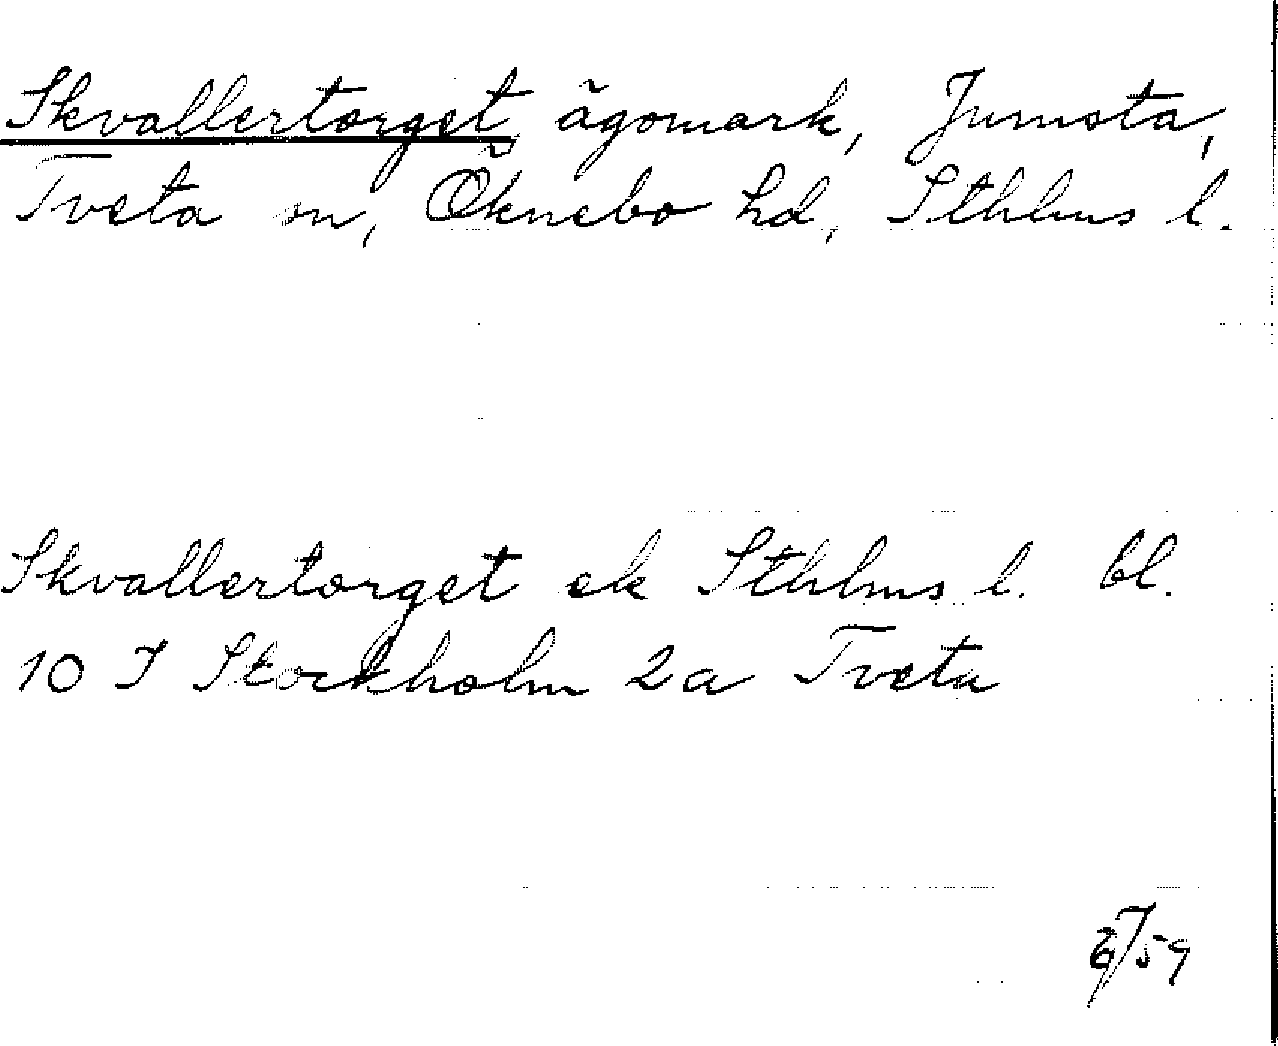 Skvallertorget, ägomark, Jumsta,
Tveta sn, Öknebo hd, Sthlms l.
Skvallertorget ek Sthlms l. bl.
10 I Stockholm 2a Tveta